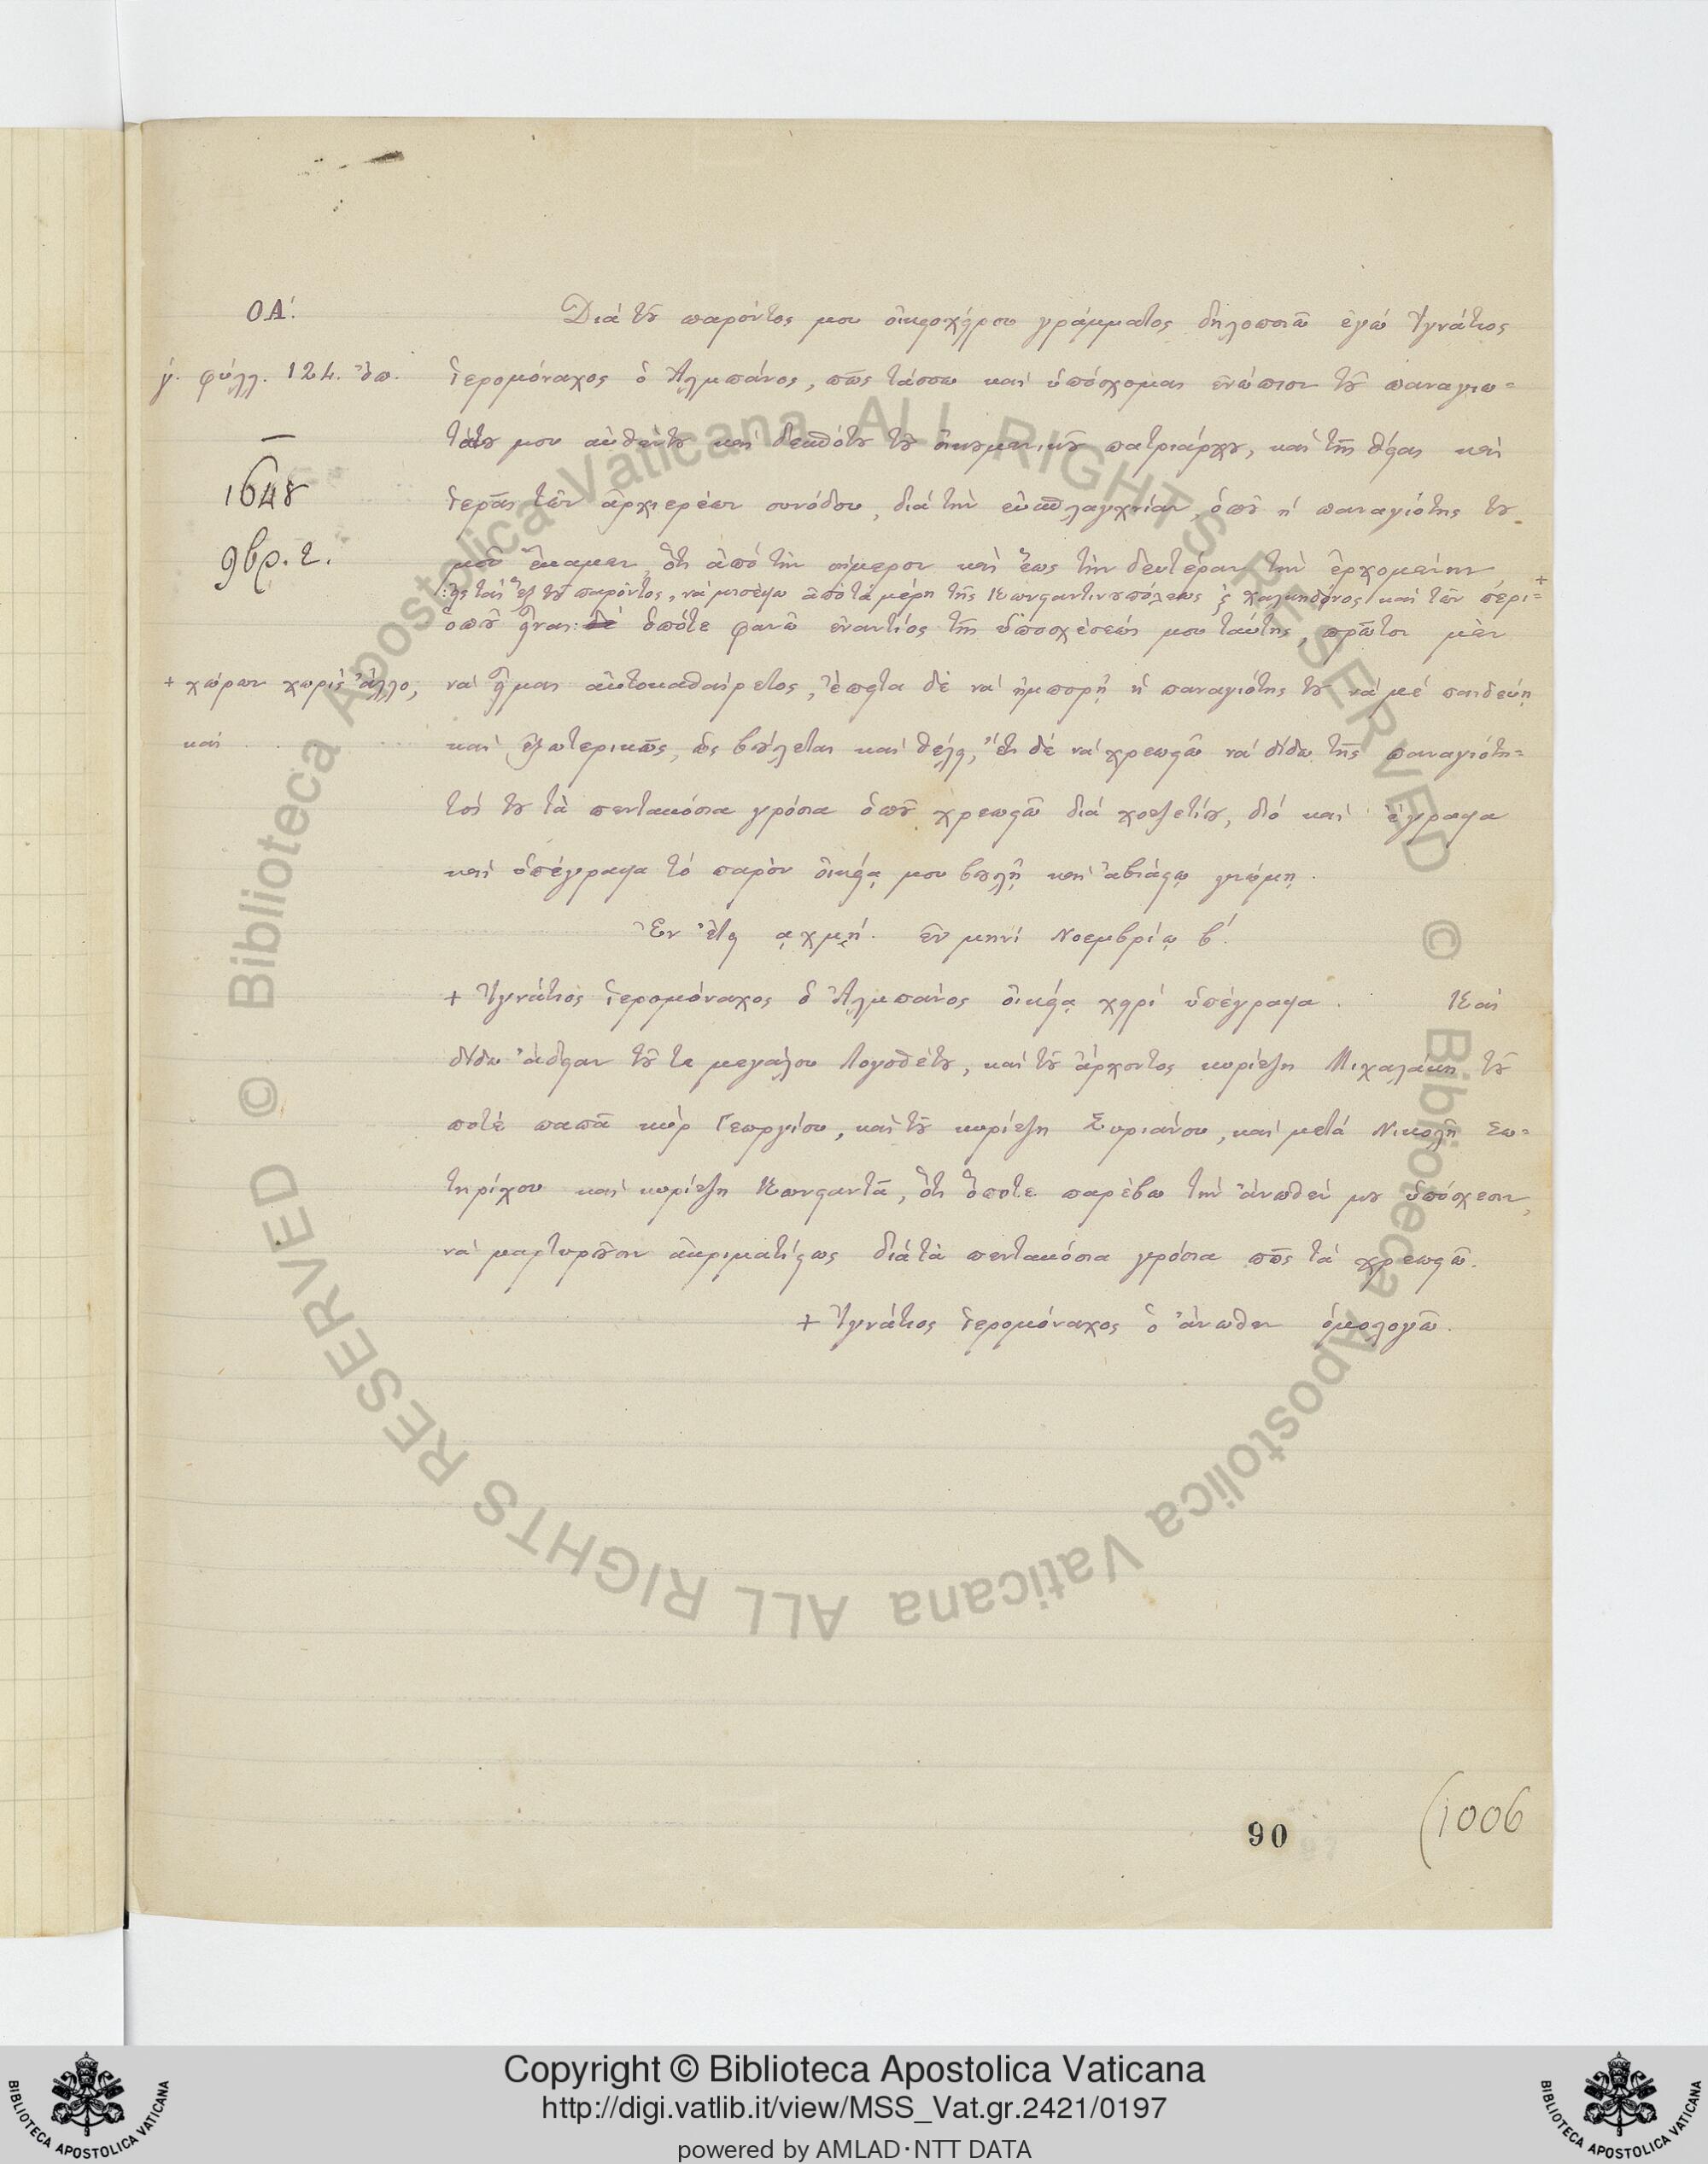 ΟΑ΄.
γ΄. φύλλ. 124. ὄπ.
1648
9βρ. 2.
Διά τοῦ παρόντος μου οἰκειοχείρου γράμματος δηλοποιῶ ἐγώ Ἰγνάτιος
ἱερομόναχος ὁ Ἀλμπάνος, πῶς τάσσω καί ὑπόσχομαι ἐνώπιον τοῦ παναγιω=
τάτου μου αὐθέντου καί δεσπότου τοῦ οἰκουμενικοῦ πατριάρχου, καί τῆς θείας καί
ἱερᾶς τῶν ἀρχιερέων συνόδου, διά τήν εὐσπλαγχνίαν, ὁποῦ ἡ παναγιότης του
μοῦ ἔκαμεν, ὅτι ἀπό τήν σήμερον καί ἕως τήν δευτέραν τήν ἐρχομένην,
εἰς ταῖς ἕξ τοῦ παρόντος, νά μισέψω ἀπό τά μέρη τῆς Κωνσταντινουπόλεως ϛ χαλκηδόνος καί τῶν περι= +
ὁποῦ εἶναι: δέ ὁπότε φανῶ ἐναντίος τῆς ὑποσχέσεώς μου ταύτης, πρῶτον μέν
+ χώρων χωρίς ἄλλο,
καί
νά εἶμαι αὐτοκαθαίρετος, ἔπειτα δέ νά ἠμπορῇ ἡ παναγιότης του νά μέ παιδεύῃ
καί ἐξωτερικῶς, ὡς βούλεται καί θέλει, ἔτι δέ νά χρεωστῶ νά δίδω τῆς παναγιότη=
τός του τὰ πεντακόσια γρόσια ὁποῦ χρεωστῶ διά χοτζετίου, διό καί ἔγραψα
καί ὑπέγραψα τό παρόν οἰκείᾳ μου βουλῇ καί ἀβιάστῳ γνώμῃ.
Ἐν ἔτει ͵αχμη΄. ἐν μηνί Νοεμβρίῳ β΄.
+ Ἰγνάτιος ἱερομόναχος ὁ Ἀλμπάνος οἰκείᾳ χειρί ὑπέγραψα. Καί
δίδω ἄδειαν τοῦ τε μεγάλου Λογοθέτου, καί τοῦ ἄρχοντος κυρίτζη Μιχαλάκη τοῦ
ποτέ παπᾶ κύρ Γεωργίου, καί τοῦ κυρίτζη Συριάνου, καί μετά Νικολῆ Σω=
τηρίχου καί κυρίτζη Κωνσταντᾶ, ὅτι ὅποτε παρέβω τήν ἄνωθέν μου ὑπόσχεσιν,
νά μαρτυροῦσιν ἀκριματίστως διά τὰ πεντακόσια γρόσια πῶς τά χρεωστῶ.
+ Ἰγνάτιος ἱερομόναχος ὁ ἄνωθεν ὁμολογῶ.
90
(1006
© Biblioteca Apostolica Vaticana ALL RIGHTS RESERVED
© Biblioteca Apostolica Vaticana ALL RIGHTS RESERVED
Copyright © Biblioteca Apostolica Vaticana
http://digi.vatlib.it/view/MSS_Vat.gr.2421/0197
powered by AMLAD·NTT DATA
BIBLIOTECA APOSTOLICA VATICANA
BIBLIOTECA APOSTOLICA VATICANA